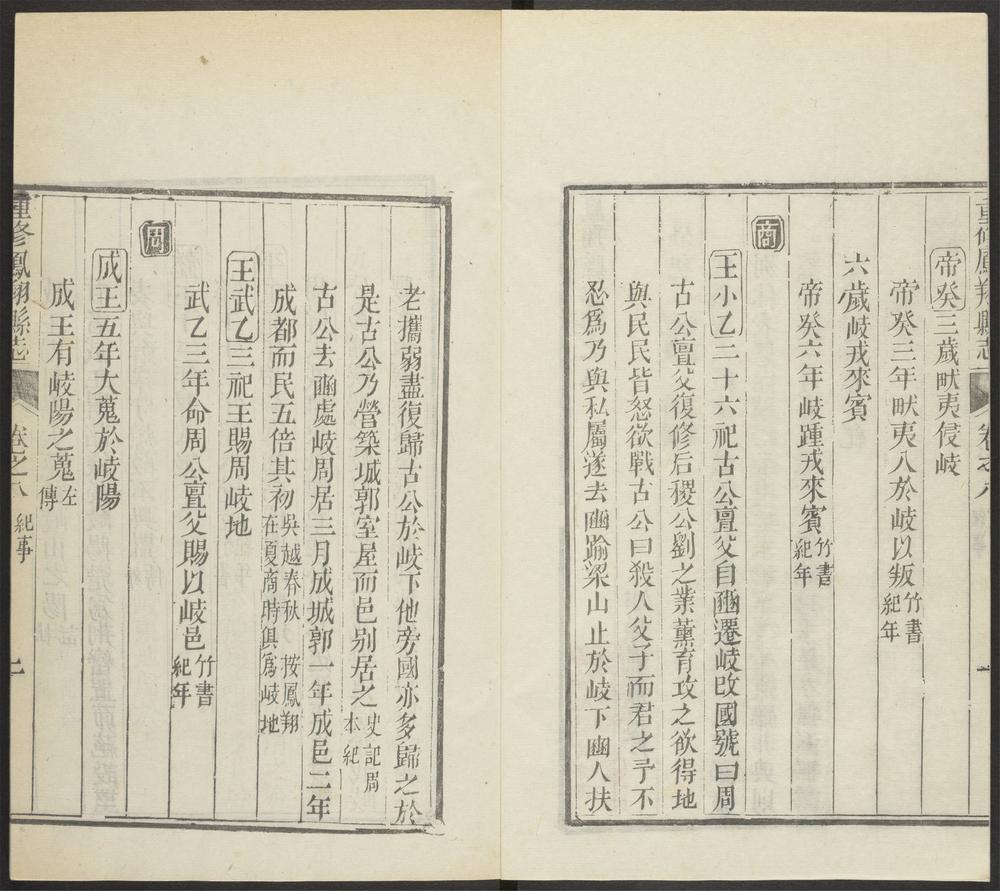 重修鳳翔縣志 卷之八
帝癸三歲畎夷侵岐
帝癸三年畎夷入於岐以叛竹書紀年
六歲岐戎來賓
帝癸六年岐踵戎來賓竹書紀年
商
王小乙二十六祀古公亶父自豳遷岐改國號曰周
古公亶父復修后稷公劉之業薰育攻之欲得地
與民民皆怒欲戰古公曰殺人父子而君之予不
忍爲乃與私屬遂去豳踰梁山止於岐下豳人扶
老攜弱盡復歸古公於岐下他旁國亦多歸之於
是古公乃營築城郭室屋而邑别居之史記周本紀
古公去豳處岐周居三月成城郭一年成邑二年
成都而民五倍其初吳越春秋 按鳳翔在夏商時俱爲岐地
王武乙三祀王賜周岐地
武乙三年命周公亶父賜以岐邑竹書紀年
周
成王五年大蒐於岐陽
成王有岐陽之蒐左傳
重修鳳翔縣志 卷之八 紀事